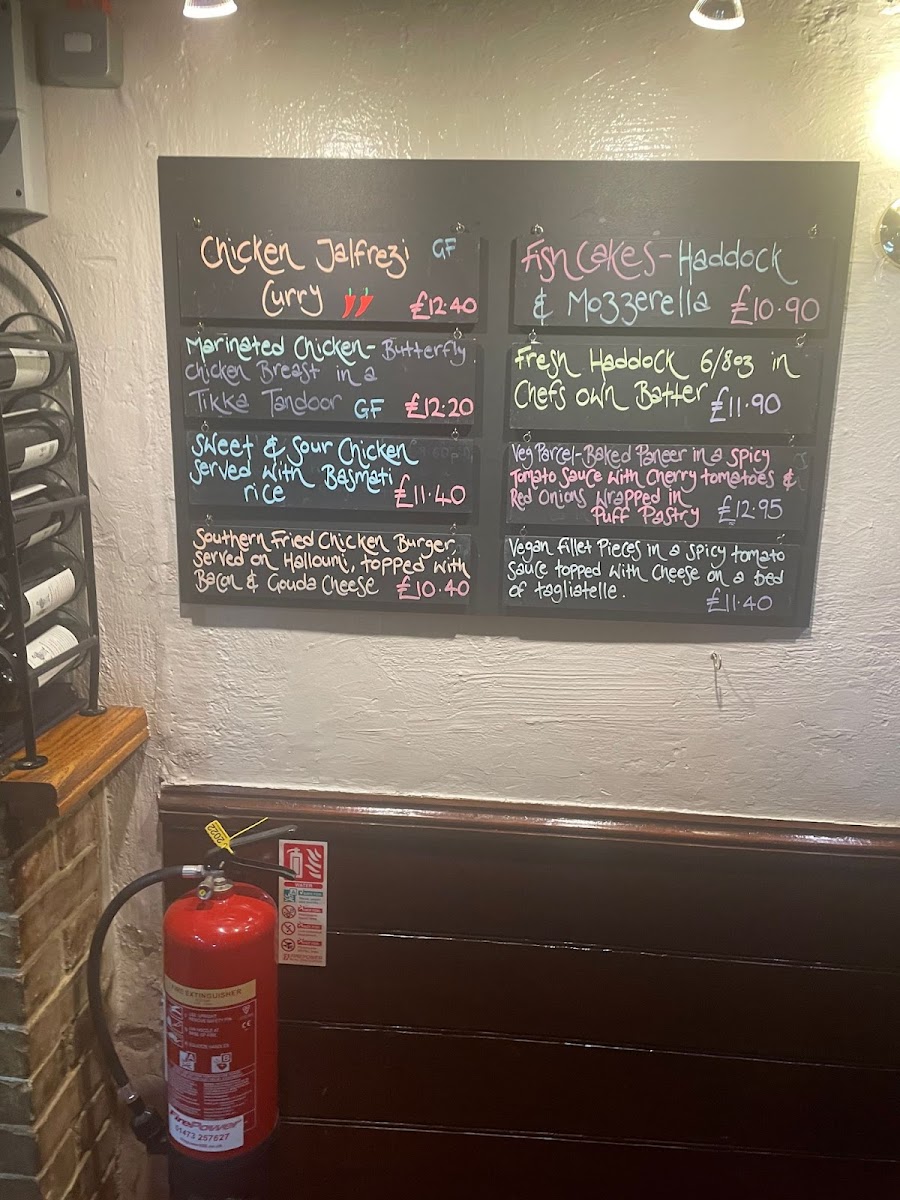 Chicken Jalfrezi GF
Curry £12.40
Marinated Chicken- Butterfly
Chicken Breast in a
Tikka Tandoor GF £12.20
Sweet & Sour Chicken
served with Basmati
rice £11.40
Southern Fried Chicken Burger,
served on Halloumi, topped with
Bacon & Gouda Cheese £10.40
Fish Cakes- Haddock
& Mozzerella £10.90
Fresh Haddock 6/8oz in
Chefs own Batter £11.90
Veg Parcel-Baked Paneer in a spicy
Tomato Sauce with Cherry tomatoes &
Red Onions Wrapped in
Puff Pastry £12.95
Vegan Fillet Pieces in a spicy tomato
Sauce topped with Cheese on a bed
of tagliatelle.
£11.40
2022
WATER
EXTINGUISHER
FirePower
01473 257627